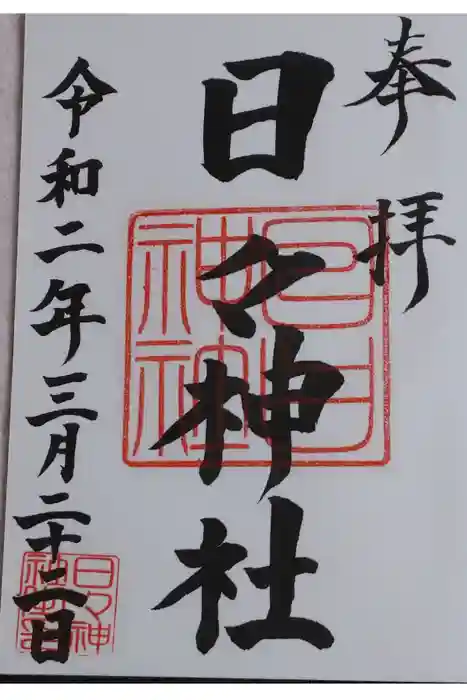 奉拝
日々神社
日日神社
令和二年三月二十二日